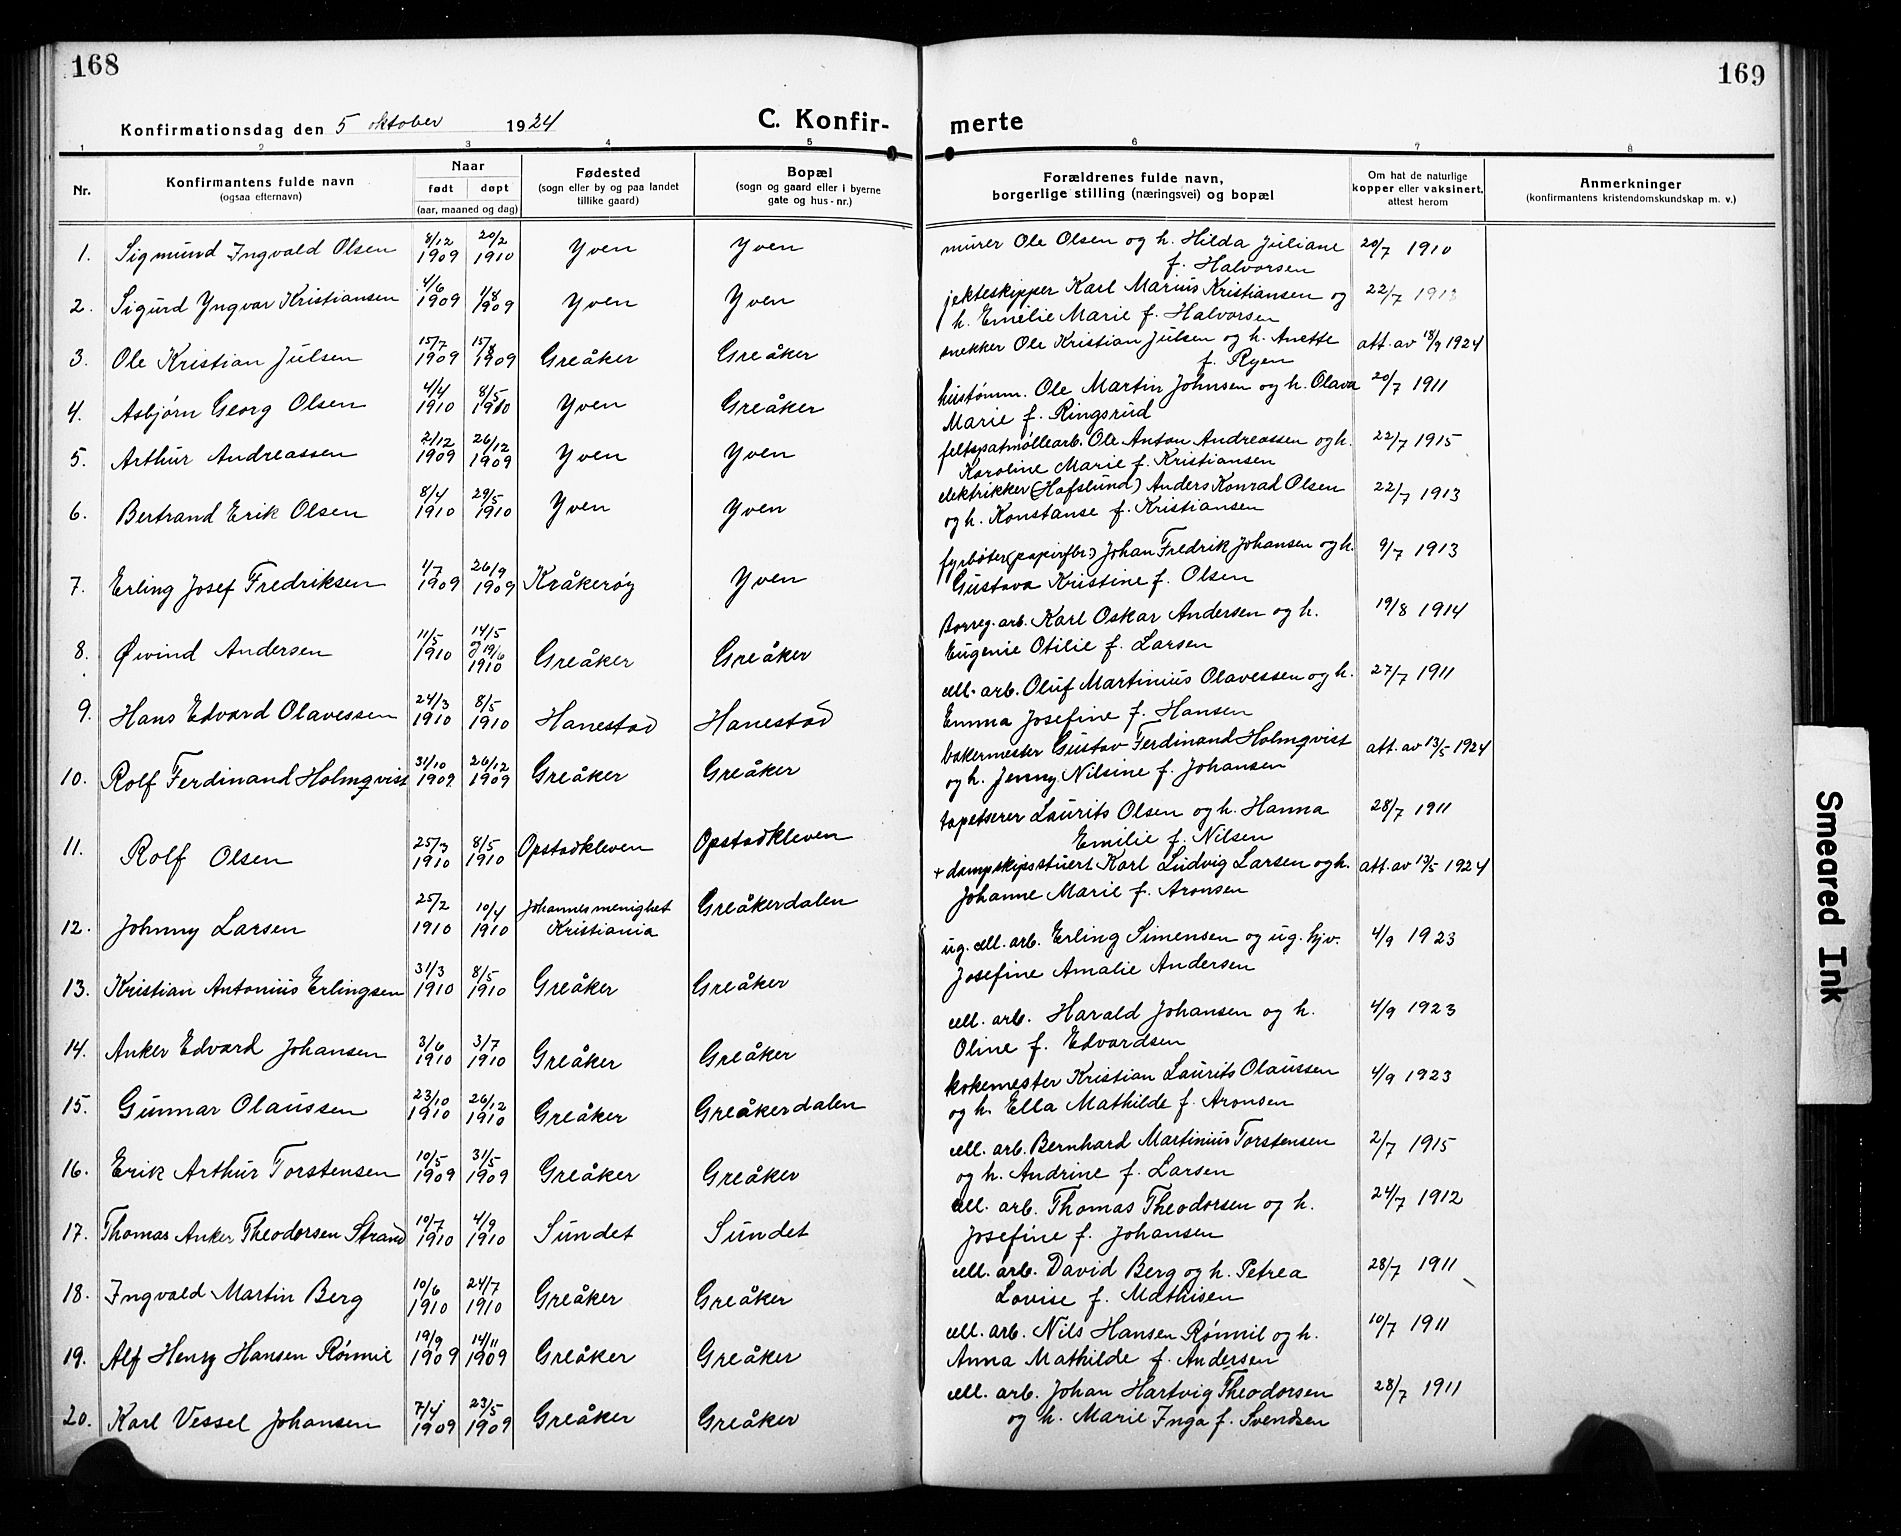 168
169
Konfirmationsdag den 5 oktober 1924
C. Konfir-
merte
1 2 3 4 5 6 7 8
Nr.
Konfirmantens fulde navn
(ogsaa efternavn)
Naar
født døpt
(aar, maaned og dag)
Fødested
(sogn eller by og paa landet
tillike gaard)
Bopæl
(sogn og gaard eller i byerne
gate og hus-nr.)
Forældrenes fulde navn,
borgerlige stilling (næringsvei) og bopæl
Om hat de naturlige
kopper eller vaksinert.
attest herom
Anmerkninger
(konfirmantens kristendomskundskap m. v.)
1. Sigmund Ingvald Olsen 8/12 1909 20/2 1910 Yven Yven murer Ole Olsen og h. Hilda Juliane 20/7 1910
f. Halvorsen
2. Sigurd Yngvar Kristiansen 4/6 1909 1/8 1909 Yven Yven jekteskipper Karl Marius Kristiansen og 22/7 1913
h. Emelie Marie f. Halvorsen
3. Ole Kristian Julsen 15/7 1909 15/8 1909 Greåker Greåker snekker Ole Kristian Julsen og h. Anette att. av 18/9 1924
f. Ryen
4. Asbjørn Georg Olsen 4/4 1910 8/5 1910 Yven Greåker hustømm. Ole Martin Johnsen og h. Olava 20/7 1911
Marie f. Ringsrud
5. Arthur Andreassen 2/12 1909 26/12 1909 Yven Yven feltspatmøllearb. Ole Anton Andreassen og h. 22/7 1915
Karoline Marie f. Kristiansen
6. Bertrand Erik Olsen 8/4 1910 29/5 1910 Yven Yven elektrikker (Hafslund) Anders Konrad Olsen 22/7 1913
og h. Konstanse f. Kristiansen
7. Erling Josef Fredriksen 4/7 1909 26/9 1909 Kråkerøy Yven fyrbøter (papirfbr.) Johan Fredrik Johansen og h. 9/7 1913
Gustava Kristine f. Olsen
8. Øivind Andersen 11/5 1910 14/5 og 19/6 1910 Greåker Greåker Borreg. arb. Karl Oskar Andersen og h. 19/8 1914
Eugenie Otilie f. Larsen
9. Hans Edvard Olavessen 24/3 1910 8/5 1910 Hanestad Hanestad cell. arb. Oluf Martinius Olavessen og h. 27/7 1911
Emma Josefine f. Hansen
10. Rolf Ferdinand Holmqvist 31/10 1909 26/12 1909 Greåker Greåker bakermester Gustav Ferdinand Holmqvist att. av 13/5 1924
og h. Jenny Nilsine f. Johansen
11. Rolf Olsen 25/3 1910 8/5 1910 Opstadkleven Opstadkleven tapetserer Laurits Olsen og h. Hanna 28/7 1911
Emilie f. Nilsen
12. Johnny Larsen 25/2 1910 10/4 1910 Johannesmenighet Kristiania Greåkerdalen + dampskipsstuert Karl Ludvig Larsen og h. att. av 13/5 1924
Johanne Marie f. Aronsen
13. Kristian Antonius Erlingsen 31/3 1910 8/5 1910 Greåker Greåker ug. cell. arb. Erling Simensen og ug. hjv. 4/9 1923
Josefine Amalie Andersen
14. Anker Edvard Johansen 3/6 1910 3/7 1910 Greåker Greåker cell. arb. Harald Johansen og h. 4/9 1923
Oline f. Edvardsen
15. Gunnar Olaussen 23/10 1910 26/12 1910 Greåker Greåkerdalen kokemester Kristian Laurits Olaussen 4/9 1923
og h. Ella Mathilde f. Aronsen
16. Erik Arthur Torstensen 10/5 1909 31/5 1909 Greåker Greåker cell. arb. Bernhard Martinius Torstensen 2/7 1915
og h. Andrine f. Larsen
17. Thomas Anker Theodorsen Strand 10/7 1910 4/9 1910 Sundet Sundet cell. arb. Thomas Theodorsen og h. 24/7 1912
Josefine f. Johansen
18. Ingvald Martin Berg 10/6 1910 24/7 1910 Greåker Greåker cell. arb. David Berg og h. Petrea 28/7 1911
Lovise f. Mathisen
19. Alf Henry Hansen Rønmil 19/9 1909 14/11 1909 Greåker Greåker cell. arb. Nils Hansen Rønmil og h. 10/7 1911
Anna Mathilde f. Andersen
20. Karl Vessel Johansen 7/4 1909 23/5 1909 Greåker Greåker cell. arb. Johan Hartvig Theodorsen 28/7 1911
og h. Marie Inga f. Svendsen
Smeared Ink